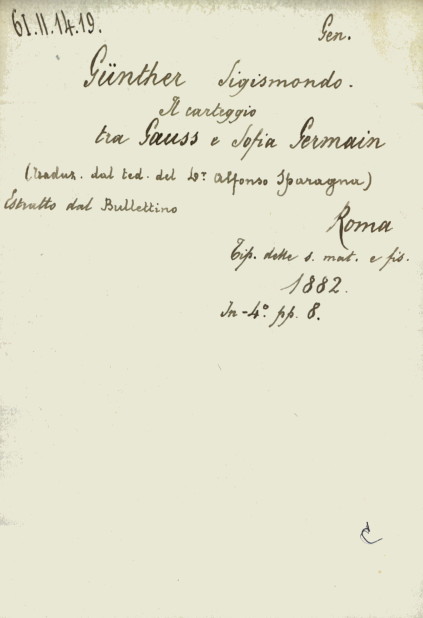 61.II.14.19.
Gen.
Günther Sigismondo.
Il carteggio
tra Gauss e Sofia Germain
(traduz. dal ted. del Dr. Alfonso Sparagna)
Estratto dal Bullettino
Roma
Tip. delle s. mat. e fis.
1882.
In-4º. pp. 8.